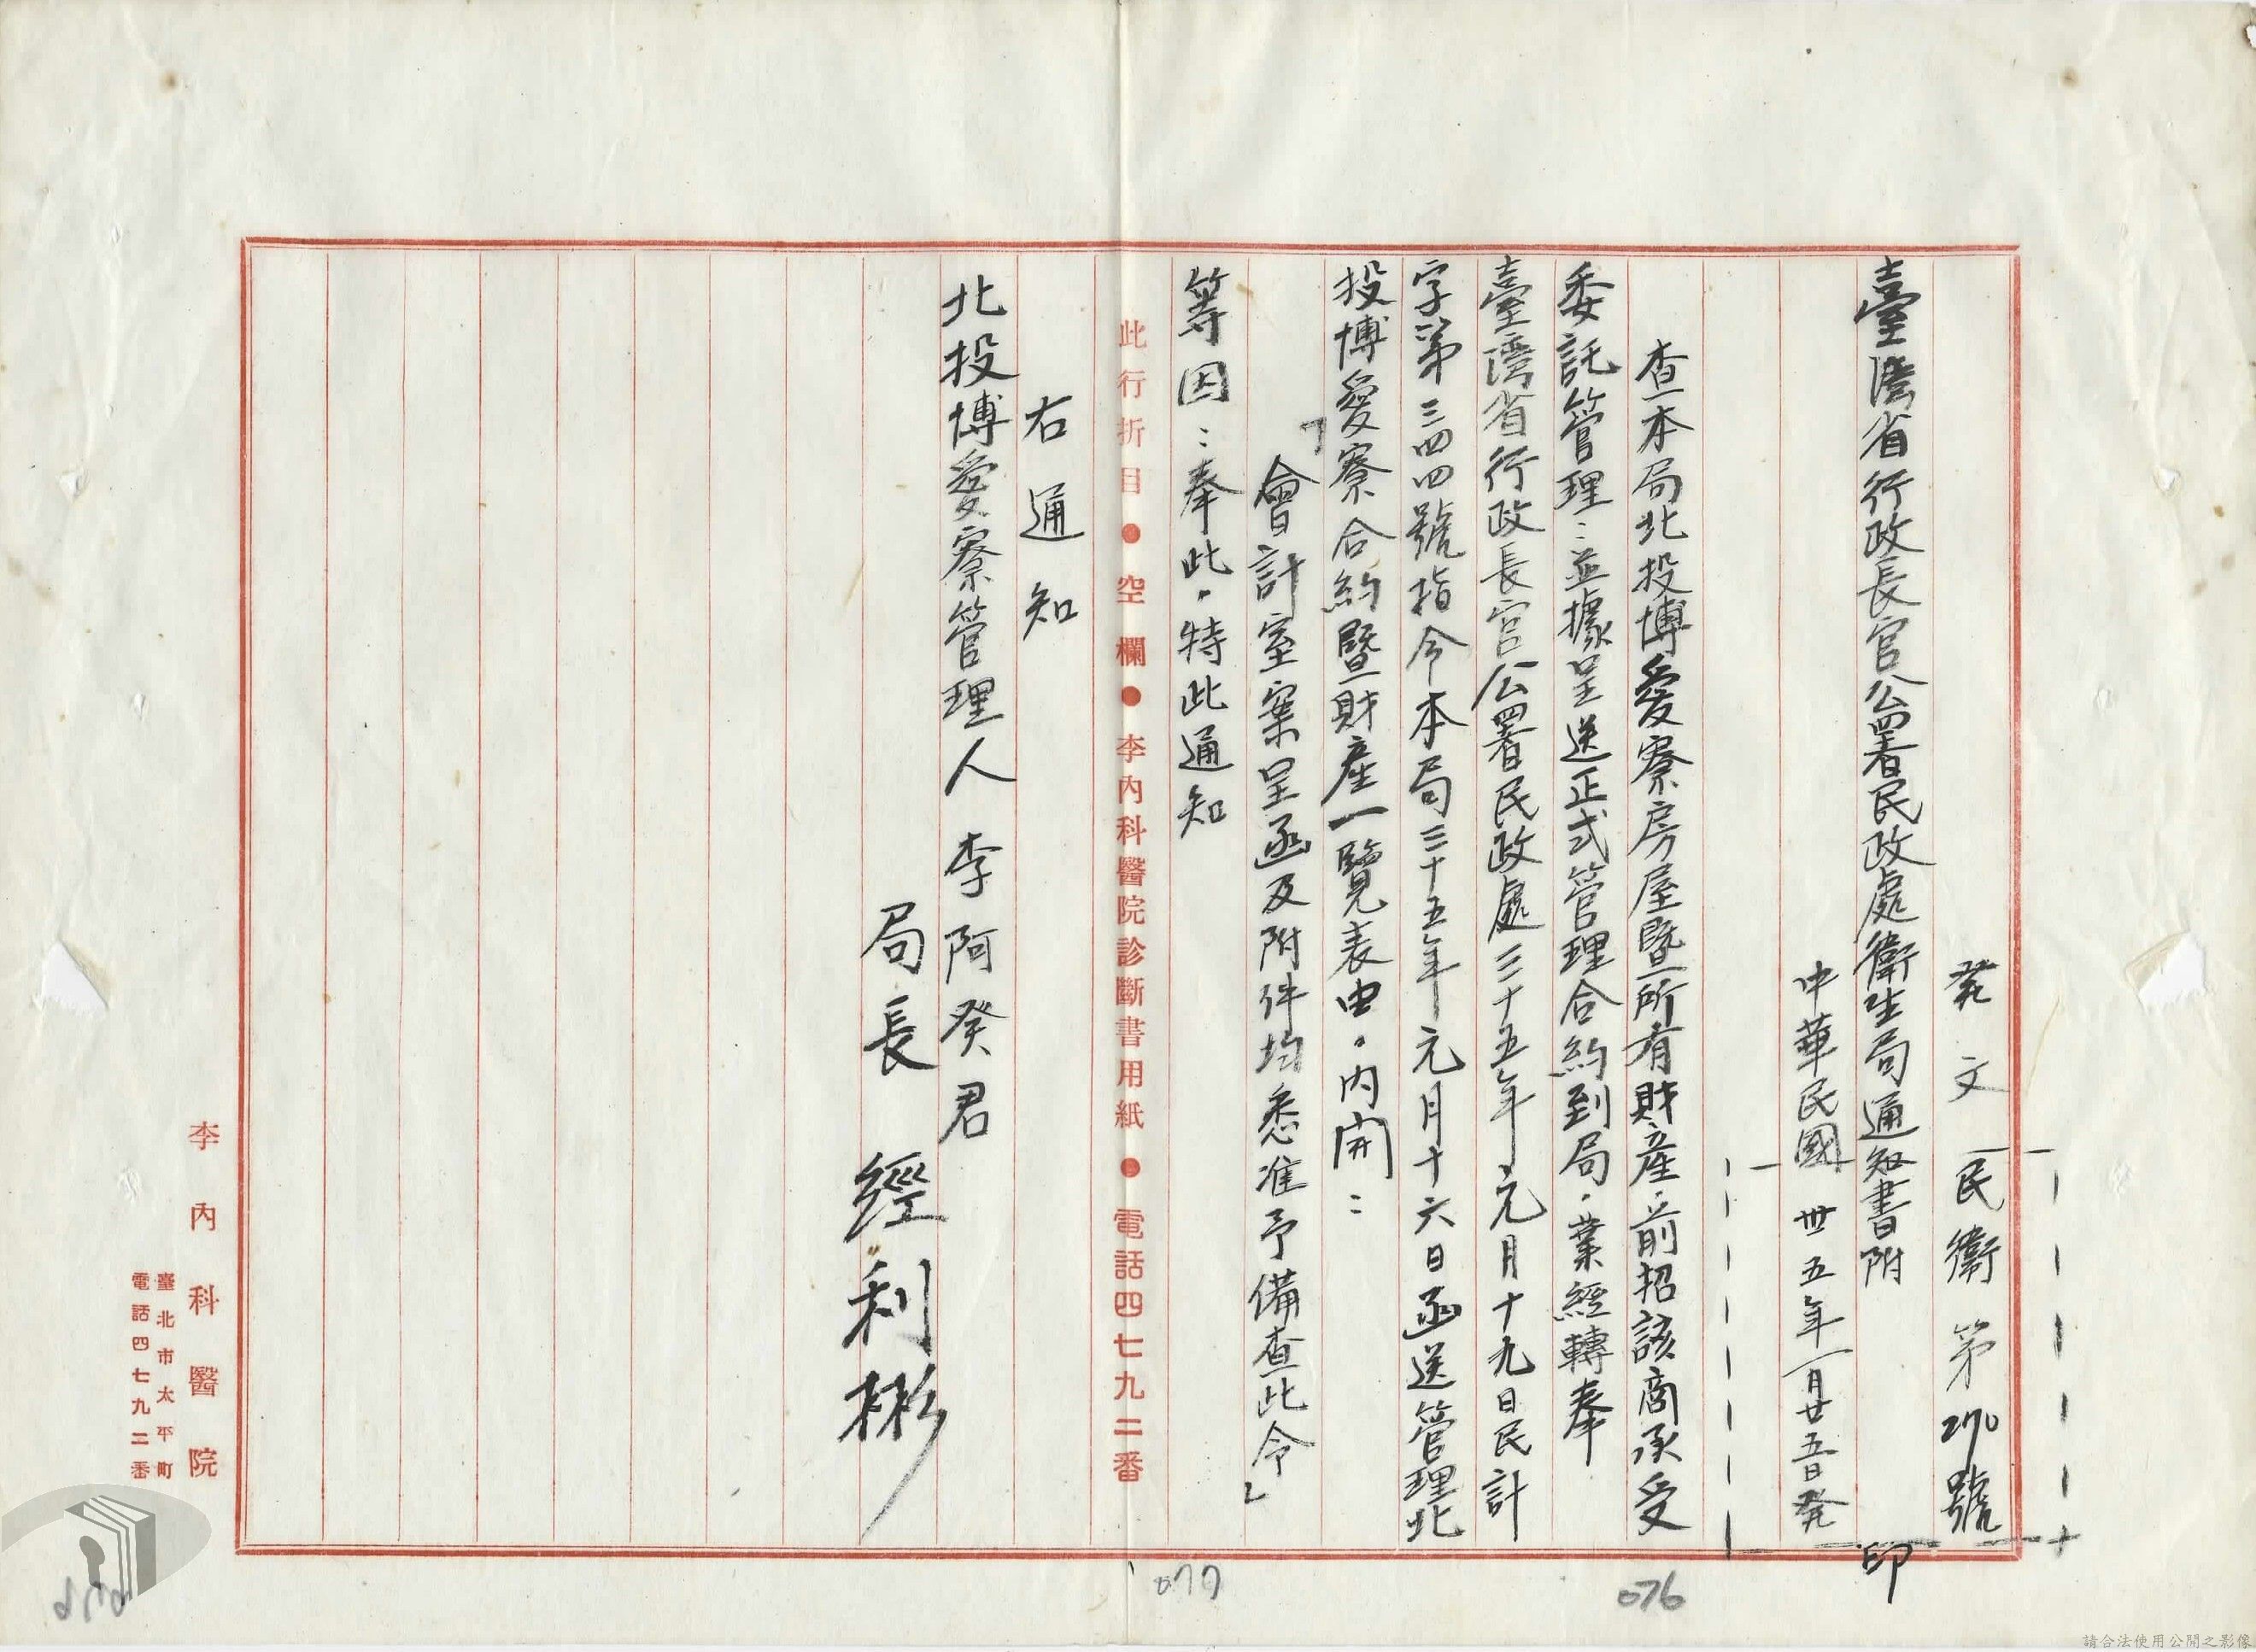 發文民衛第270號
臺灣省行政長官公署民政處衛生局通知書附
印
中華民國卅五年一月廿五日發
查本局北投博愛寮房屋暨所有財產．前招該商承受
委託管理：並據呈送正式管理合約到局．業經轉奉
臺灣省行政長官公署民政處三十五年元月十九日民計
字第三四四號指令本局三十五年元月十六日函送管理北
投博愛寮合約暨財產一覽表由．內開：
「會計室案呈函及附件均悉准予備查此令」
等因：奉此．特此通知
此行折目●空欄●李內科醫院診斷書用紙●電話四七九二番
右通知
北投博愛寮管理人 李阿癸君
局長 經利彬
李內科醫院
臺北市太平町
電話四七九二番
076
077
請合法使用公開之影像